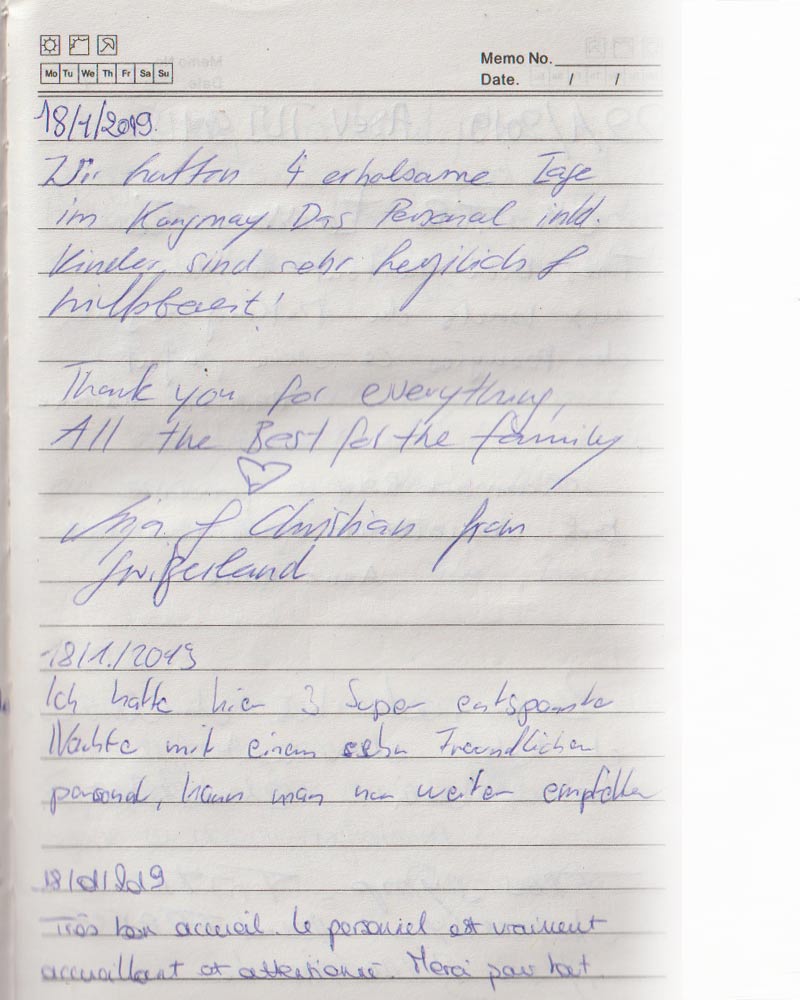 Memo No.
Mo Tu We Th Fr Sa Su
Date. / /
18/1/2019.
Wir hatten 4 erholsame Tage
im Kongmay. Das Personal inkl.
Kinder, sind sehr herzlich &
hilfsbereit!
Thank you for everything,
All the Best for the family
& Christian from
Switzerland
18/1./2019
Ich hatte hier 3 Super entspannte
Nächte mit einem sehr Freundlichen
personal, kann man nur weiter empfehlen
18/01/2019
Très bon accueil. Le personnel est vraiment
accueillant et attentionné. Merci pour tout.